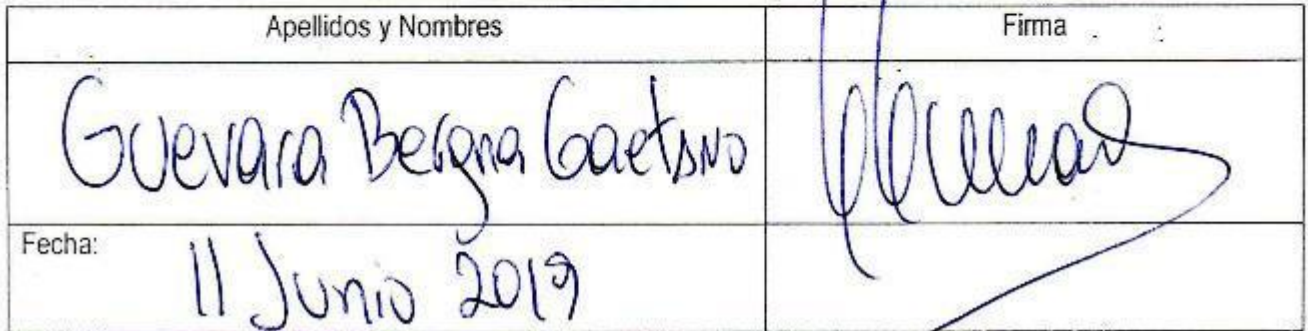 Apellidos y Nombres Firma
Guevara Bergna Gaetano
Fecha: 11 Junio 2019